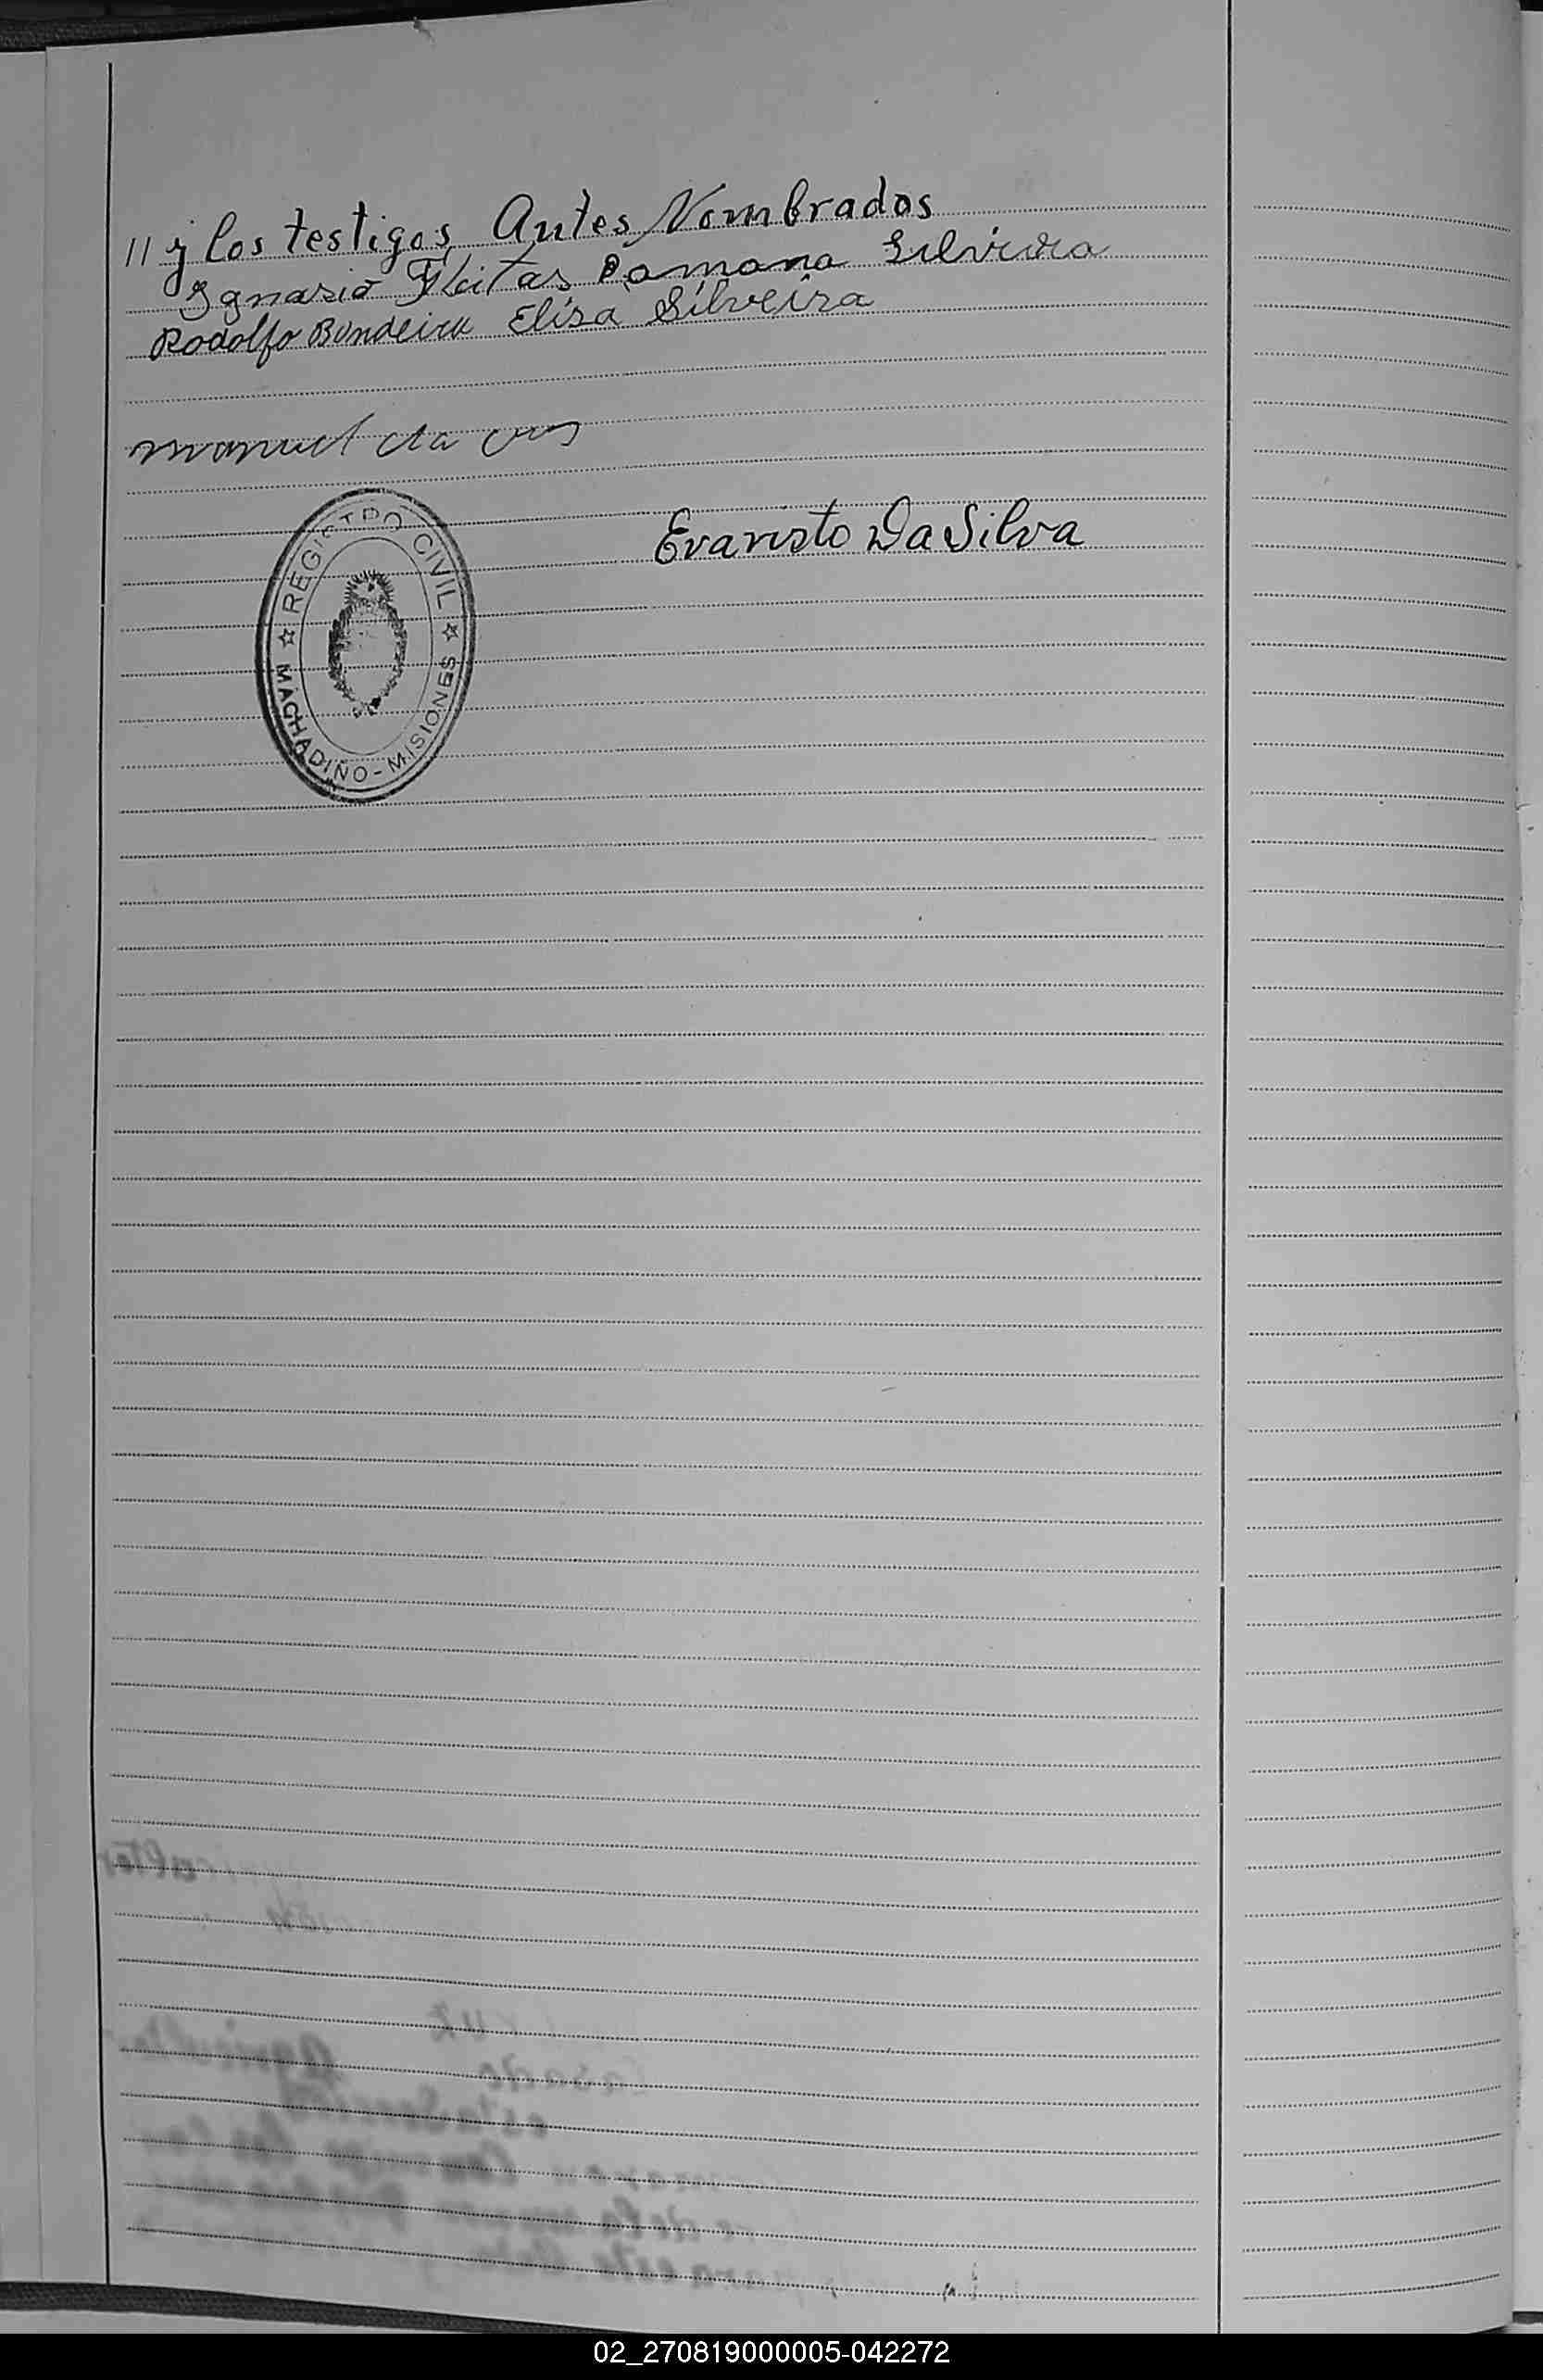 // y los testigos Antes Nombrados
Ignasio Fleitas Ramona Silveira
Rodolfo Bandeira Elisa Silveira
manuel da cruz
Evaristo Da Silva
REGISTRO CIVIL
MACHADIÑO - MISIONES
02_270819000005-042272